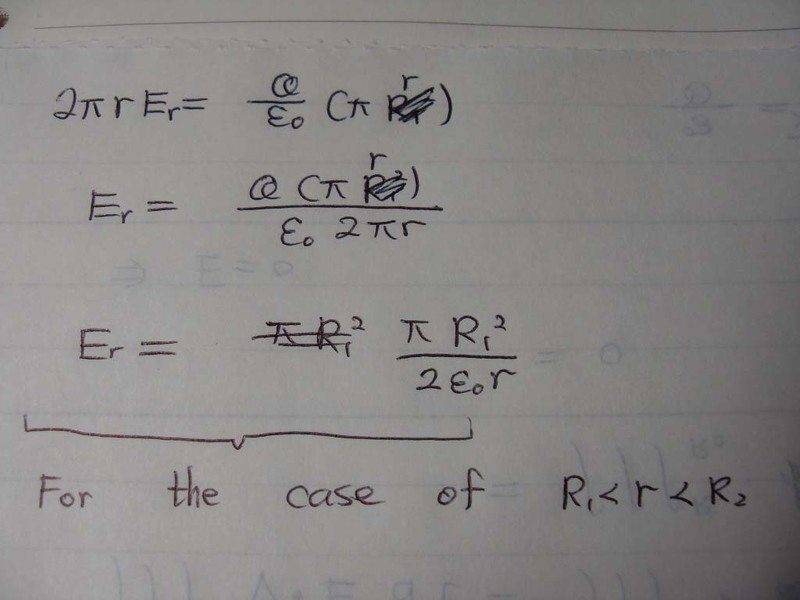 2π r Eᵣ = Q/ε₀ (π r)
Eᵣ = Q (π r) / ε₀ 2πr
Eᵣ = π R₁² π R₁² / 2ε₀r
For the case of R₁ < r < R₂